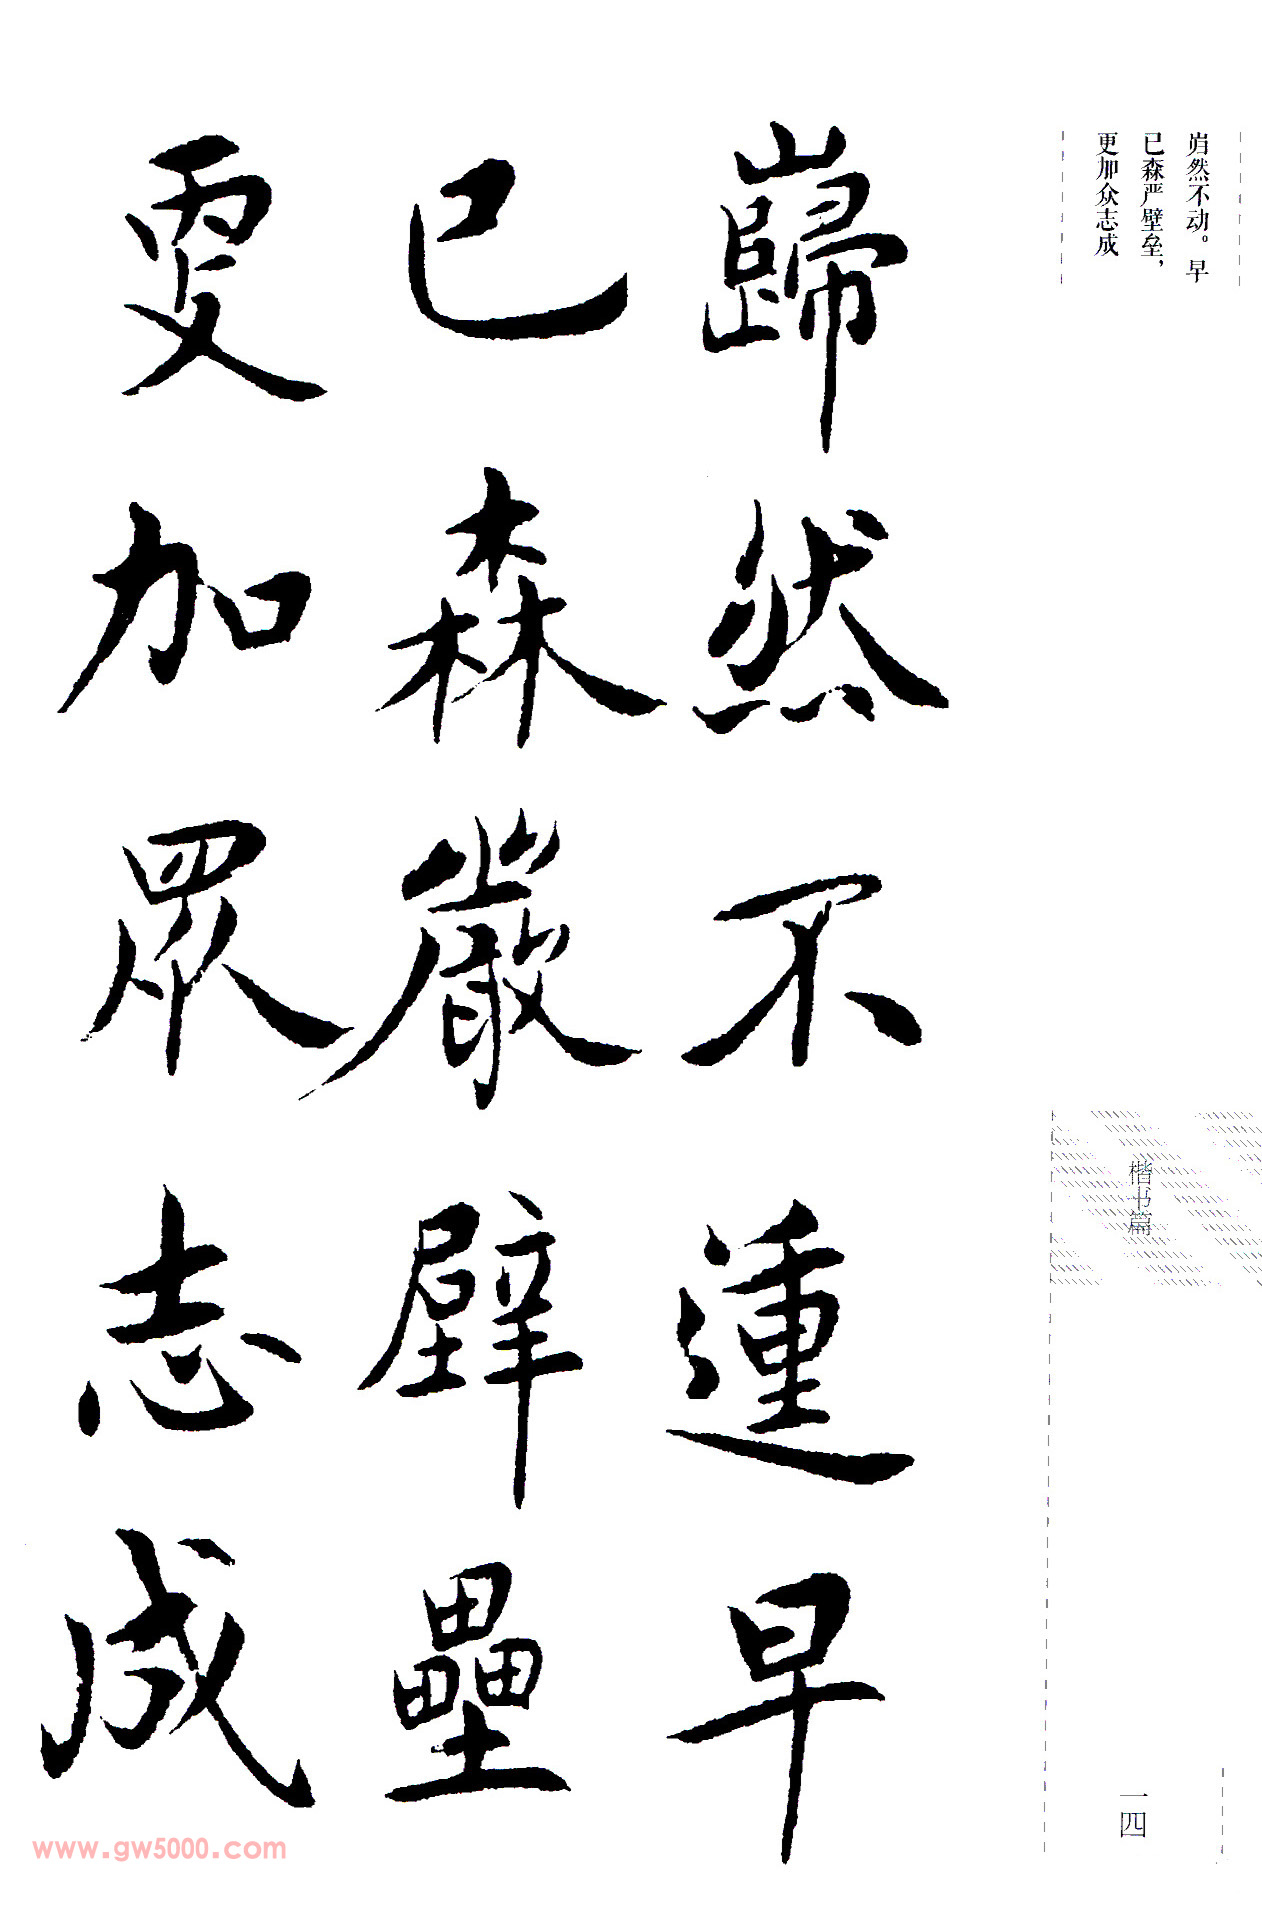 岿然不动。早
已森严壁垒，
更加众志成
楷书篇
一四
巋然不𨔝早
已森嚴壁壘
更加眾志成
www.gw5000.com